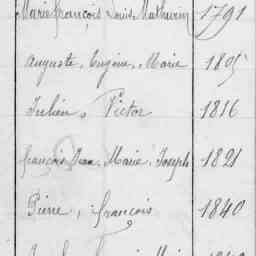 Marie françois Louis Mathurin 1791
Auguste, Eugène, Marie 1805
Julien, Victor 1816
françois Jean, Marie, Joseph 1821
Pierre, françois 1840